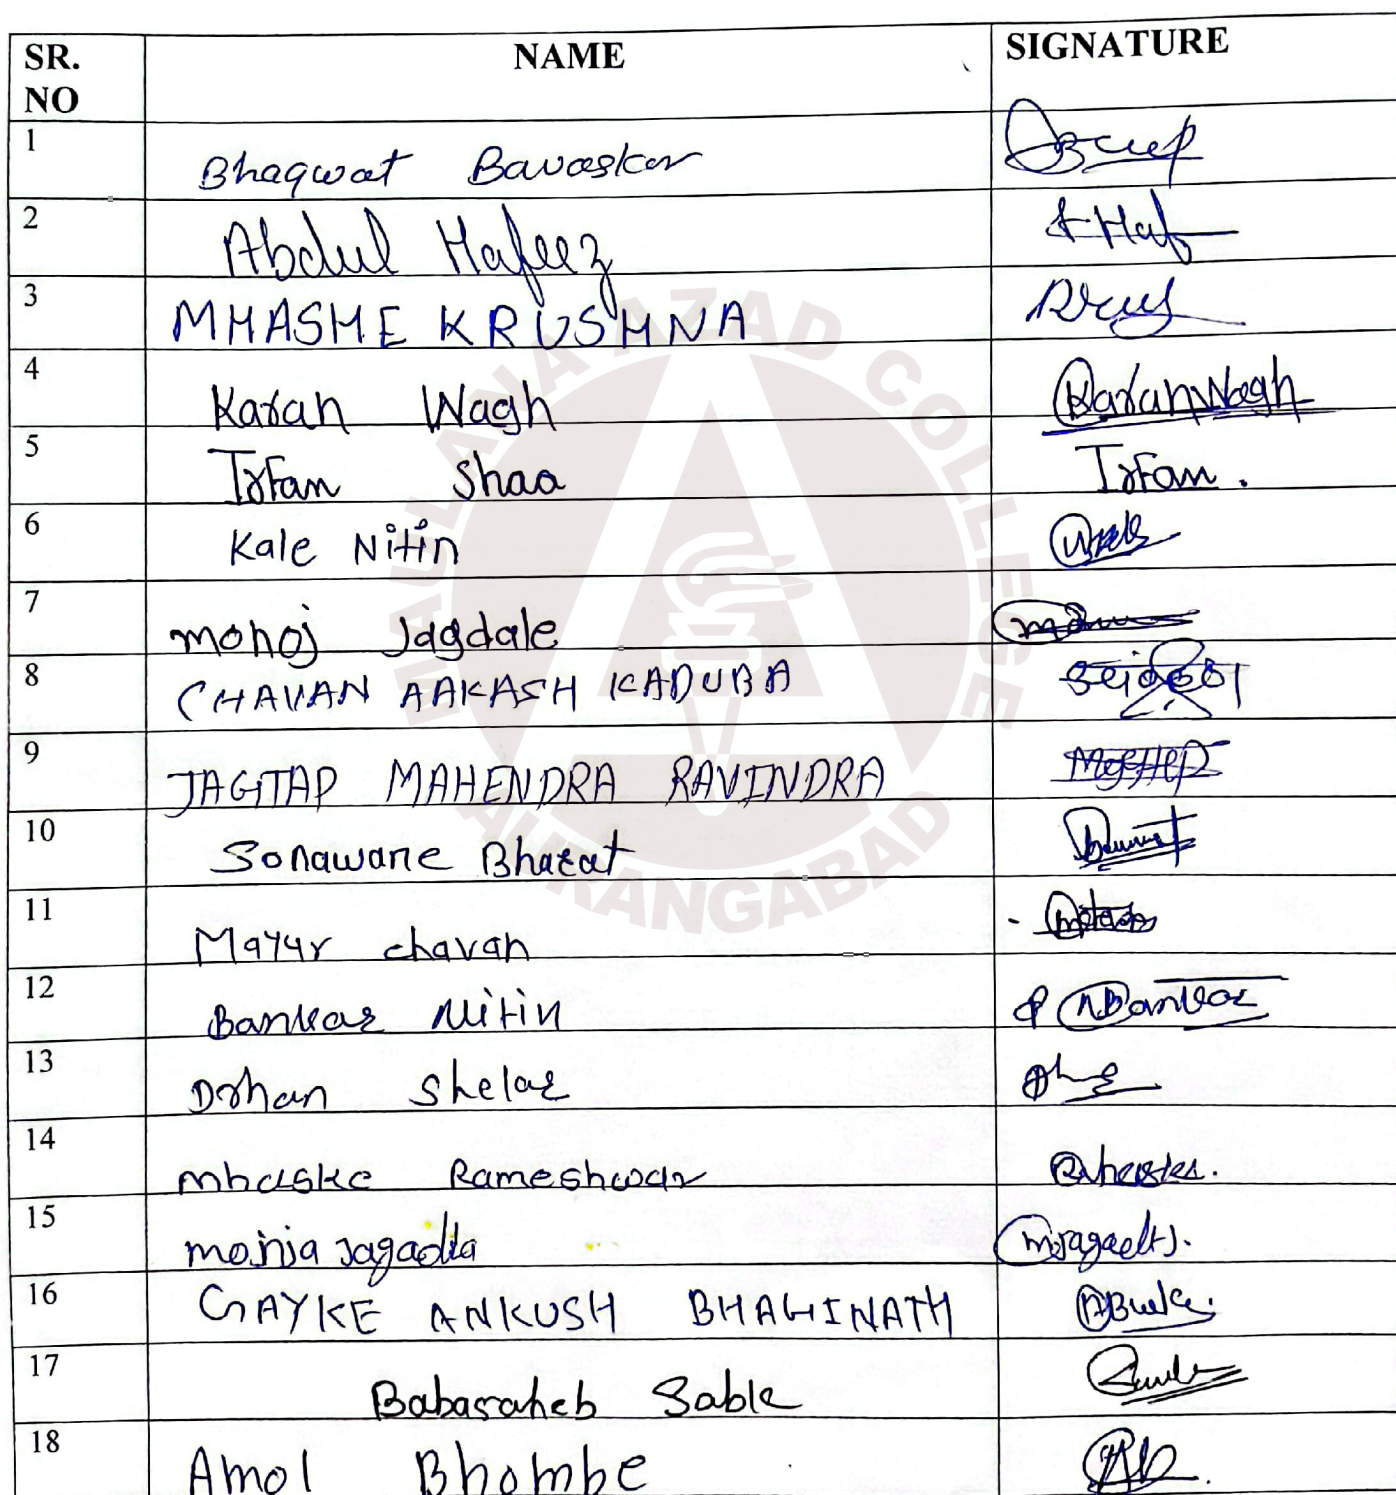 SR. NO NAME SIGNATURE
1 Bhagwat Bavaskar
2 Abdul Hafeez
3 MHASHE KRUSHNA
4 Karan Wagh KaranWagh
5 Irfan Shaa Irfan.
6 Kale Nitin
7 mohoj Jagdale
8 CHAVAN AAKASH KADUBA
9 JAGTAP MAHENDRA RAVINDRA
10 Sonawane Bharat
11 Mayur chavan
12 Bankar Nitin NBankar
13 Drhan Shelar
14 mhaske Rameshwar
15 Jagadia
16 GAYKE ANKUSH BHAGINATH
17 Babasaheb Sable
18 Amol Bhombe
MAULANA AZAD COLLEGE
AURANGABAD